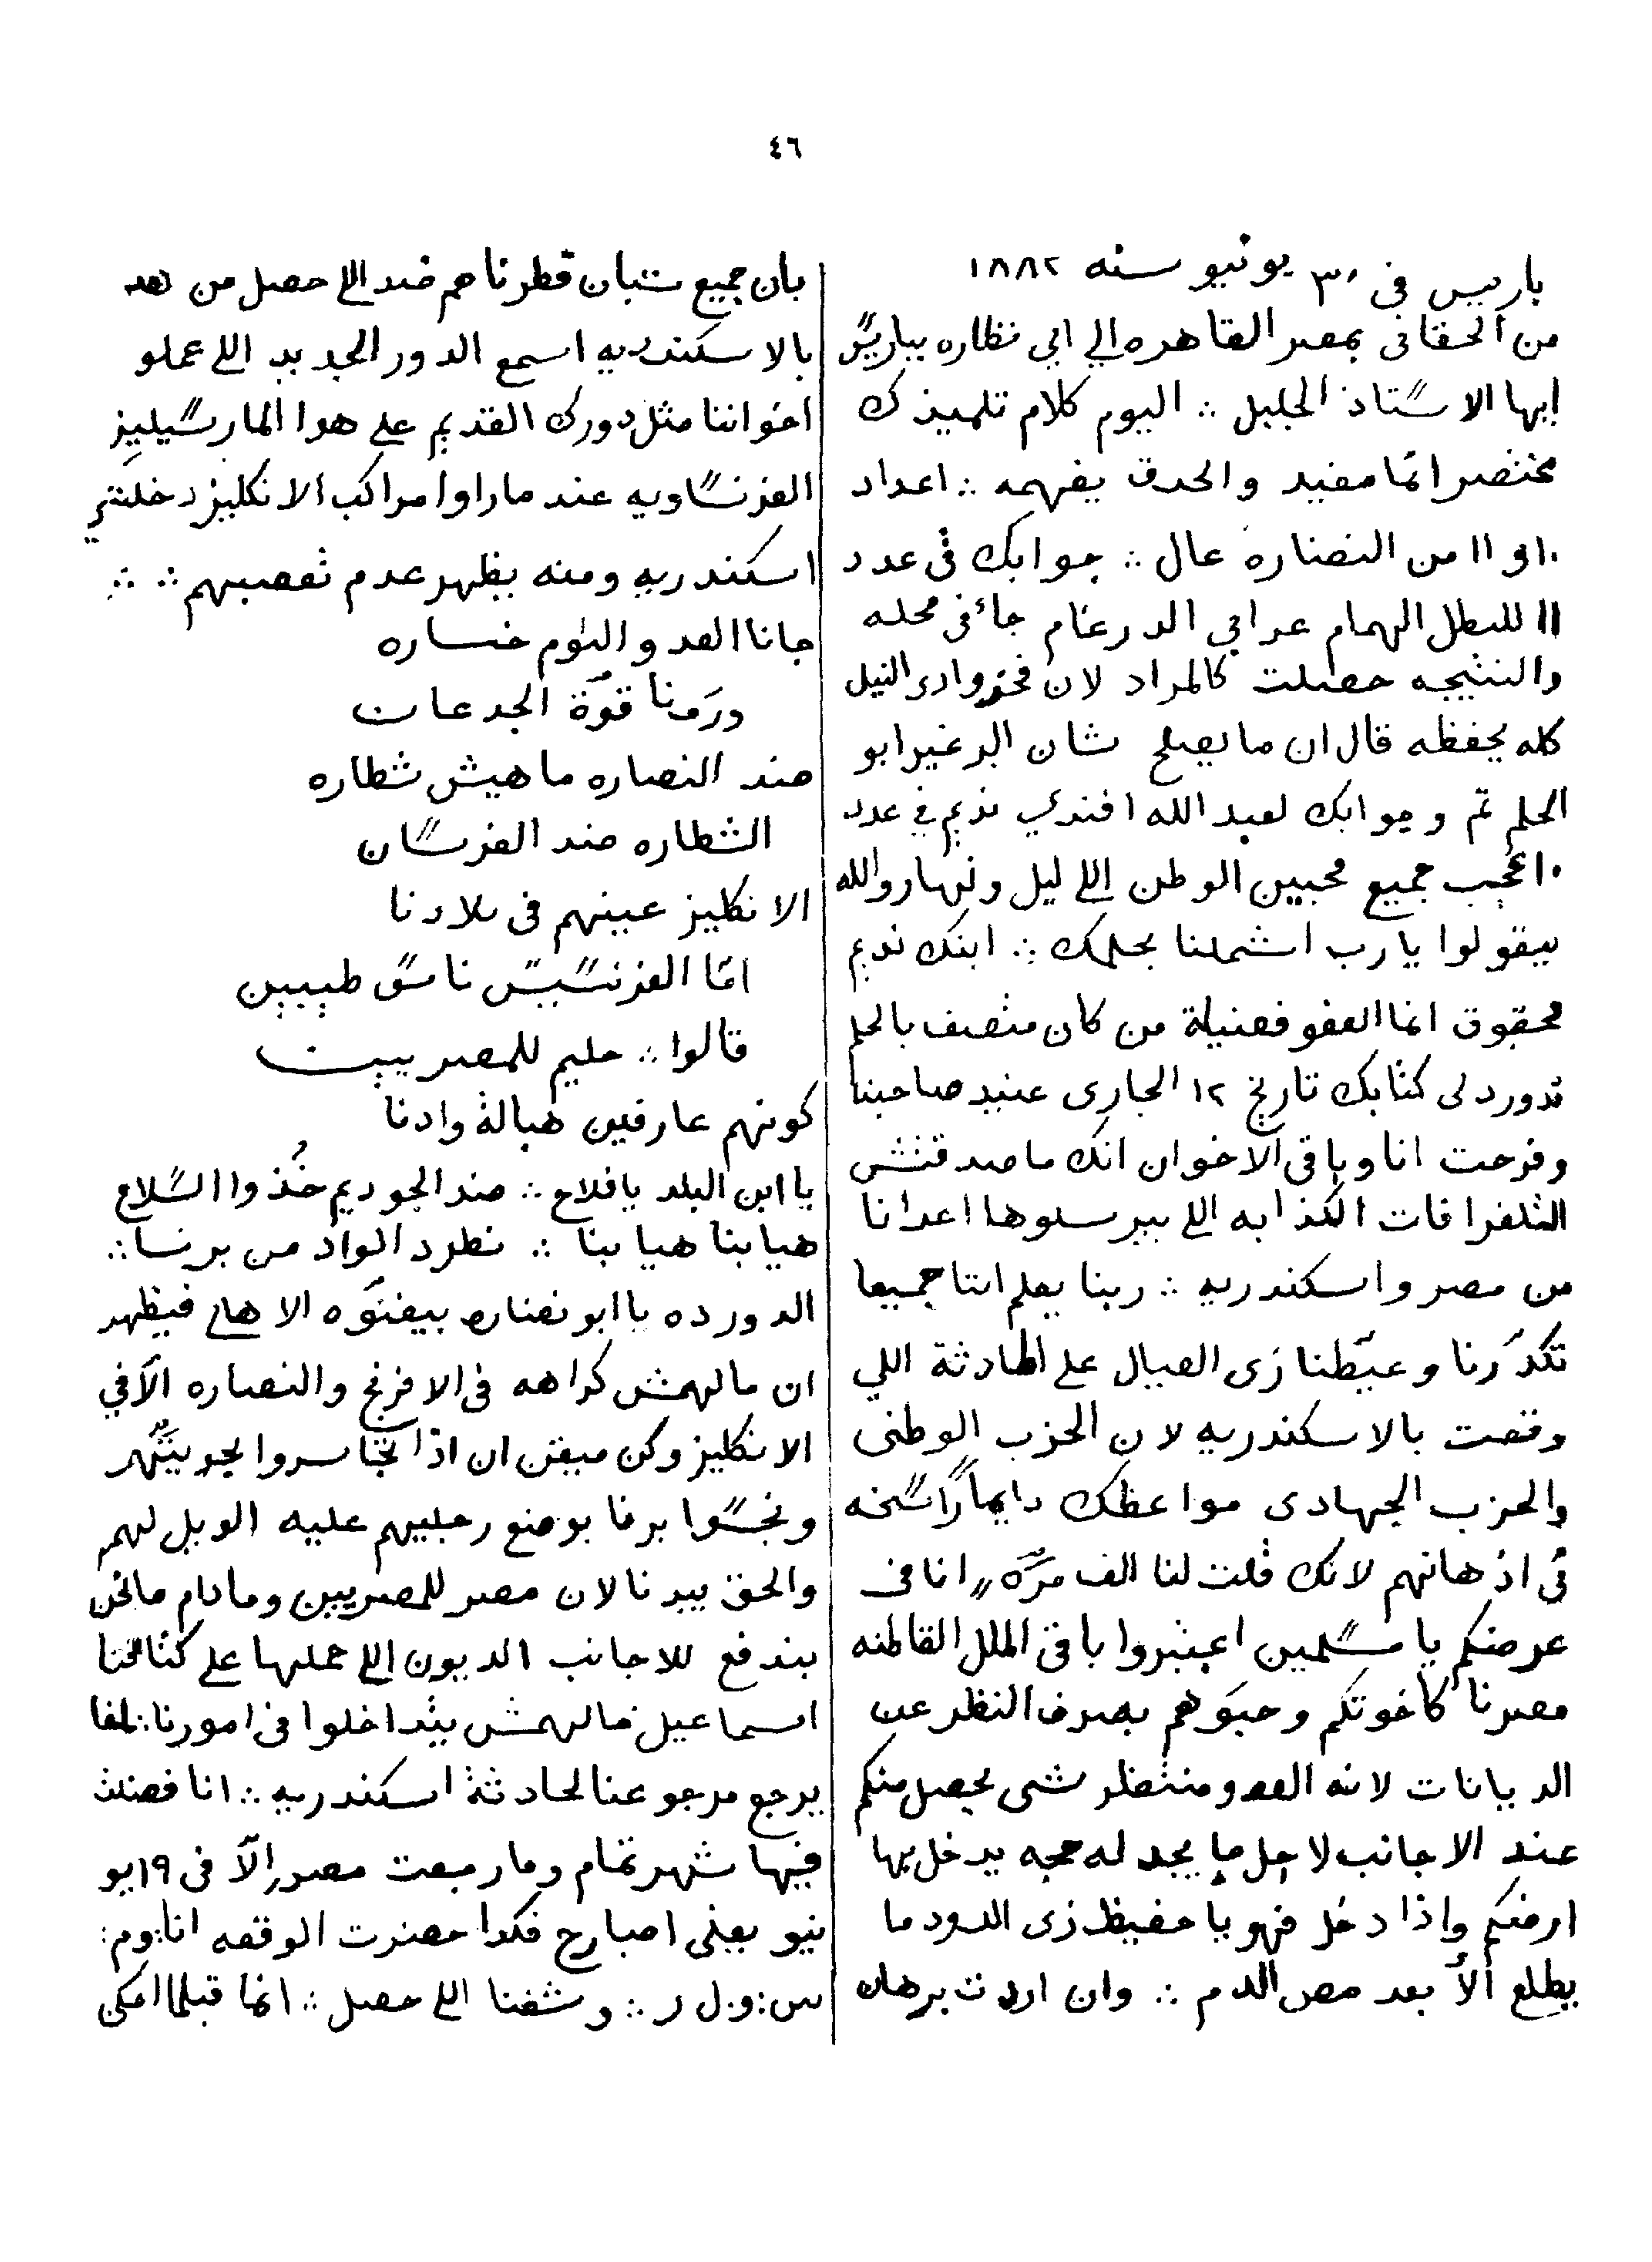 ٤٦
باريس فى ٣٠ يونيو سنه ١٨٨٢
من الحقانى بمصر القاهره الي ابي نظاره بباريس
ايها الاستاذ الجليل ∴ اليوم كلام تلميذك
مختصر انما مفيد والحدق يفهمه ∴ اعداد
١٠ و ١١ من النضاره عال ∴ جوابك فى عدد
١١ للبطل الهمام عرابي الدرغام جائ فى محله
والنتيجه حصلت كالمراد لان فخر وادى النيل
كله يحفظه قال ان ما يصلح شان البرغير ابو
الحلم تم وجوابك لعبد الله افندي نديم في عدد
١٠ اعجب جميع محبين الوطن اللي ليل ونهار والله
بيقولوا يا رب اشملنا بحلمك ∴ ابنك نديم
محقوق انما العفو فضيلة من كان متصف بالحلم
قد ورد لى كتابك تاريخ ١٢ الجارى عنيد صاحبنا
وفرحت انا وباقى الاخوان انك ما صدقتش
التلغرافات الكذابه اللي بيرسلوها اعدانا
من مصر واسكندريه ∴ ربنا يعلم اننا جميعا
تكدّرنا وعيّطنا زى العيال على الحادثة اللي
وقعت بالاسكندريه لان الحزب الوطنى
والحزب الجهادى مواعظك دايماً راسخه
فى اذهانهم لانك قلت لنا الف مرّه „ انا فى
عرضكم يا مسلمين اعتبروا باقى الملل القاطنه
مصرنا كاخوتكم وحبوهم بصرف النظر عن
الديانات لانه العدو منتظر شى يحصل منكم
عند الاجانب لاجل ما يجد له حجه يدخل بها
ارضكم واذا دخل فهو يا حفيظ زى الدود ما
يطلع الّا بعد مص الدم ∴ وان اردت برهان
بان جميع شبان قطرنا هم ضد اللي حصل من
بالاسكندريه اسمع الدور الجديد اللي عملو
اخواننا مثل دورك القديم على هوا المارسيليز
الفرنساويه عند ما راوا مراكب الانكليز دخلت
اسكندريه ومنه يظهر عدم تعصبهم ∴ ∴
جانا العدو اليوم خساره
ورَمنا قوّة الجدعان
ضد النصاره ما هيش شطاره
الشطاره ضد الفرسان
الانكليز عينهم فى بلادنا
امّا الفرنسيس ناس طيبين
قالوا ∴ حليم للمصريين
كونهم عارفين هبالة وادنا
يا ابن البلد يا فلاح ∴ ضد الجوديم خُذوا السلاح
هيا بنا هيا بنا ∴ نطرد الواد من برنا ∴
الدور ده يا ابو نضاره بيغنّوه الاهالى فيظهر
ان مالهمش كراهه فى الافرنج والنصاره الّا في
الانكليز وكن ميقن ان اذا تجاسروا يجو
ونجّسوا برنا بوضع رجليهم عليه الويل لهم
والحق بيدنا لان مصر للمصريين وما دام ما نحن
بندفع للاجانب الديون اللي عملها على كتافنا
اسماعيل فمالهمش يتداخلوا فى امورنا ∴
يرجع مرجوعنا لحادثة اسكندريه ∴ انا فضلت
فيها شهر تمام وما رجعت مصر الّا فى ١٩ يو
نيو يعنى امبارح فكدا حضرت الوقعه انا و م :
س : و : ل ر ∴ وشفنا اللي حصل ∴ انما قبلما احكى